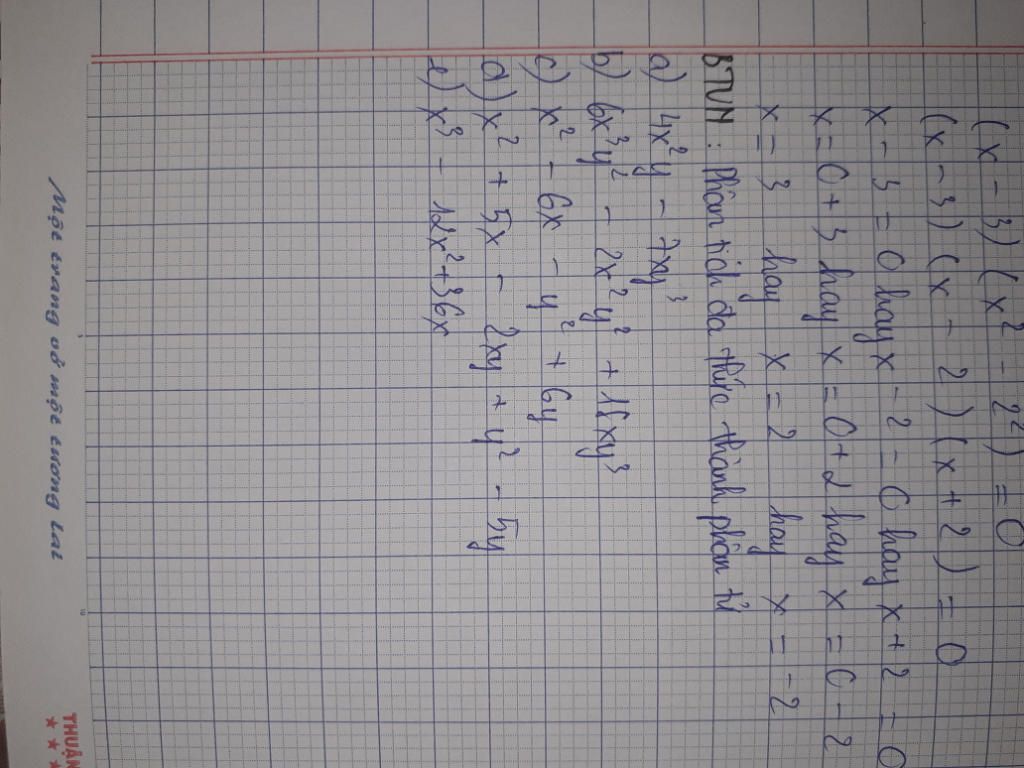 (x - 3)(x² - 2²) = 0
(x - 3)(x - 2)(x + 2) = 0
x - 3 = 0 hay x - 2 = 0 hay x + 2 = 0
x = 0 + 3 hay x = 0 + 2 hay x = 0 - 2
x = 3 hay x = 2 hay x = -2
BTVN : Phân tích đa thức thành phân tử
a) 4x²y - 7xy³
b) 6x³y² - 2x²y² + 16xy³
c) x² - 6x - y² + 6y
d) x² + 5x - 2xy + y² - 5y
e) x³ - 12x² + 36x
Một trang vở một tương lai
THUẬN